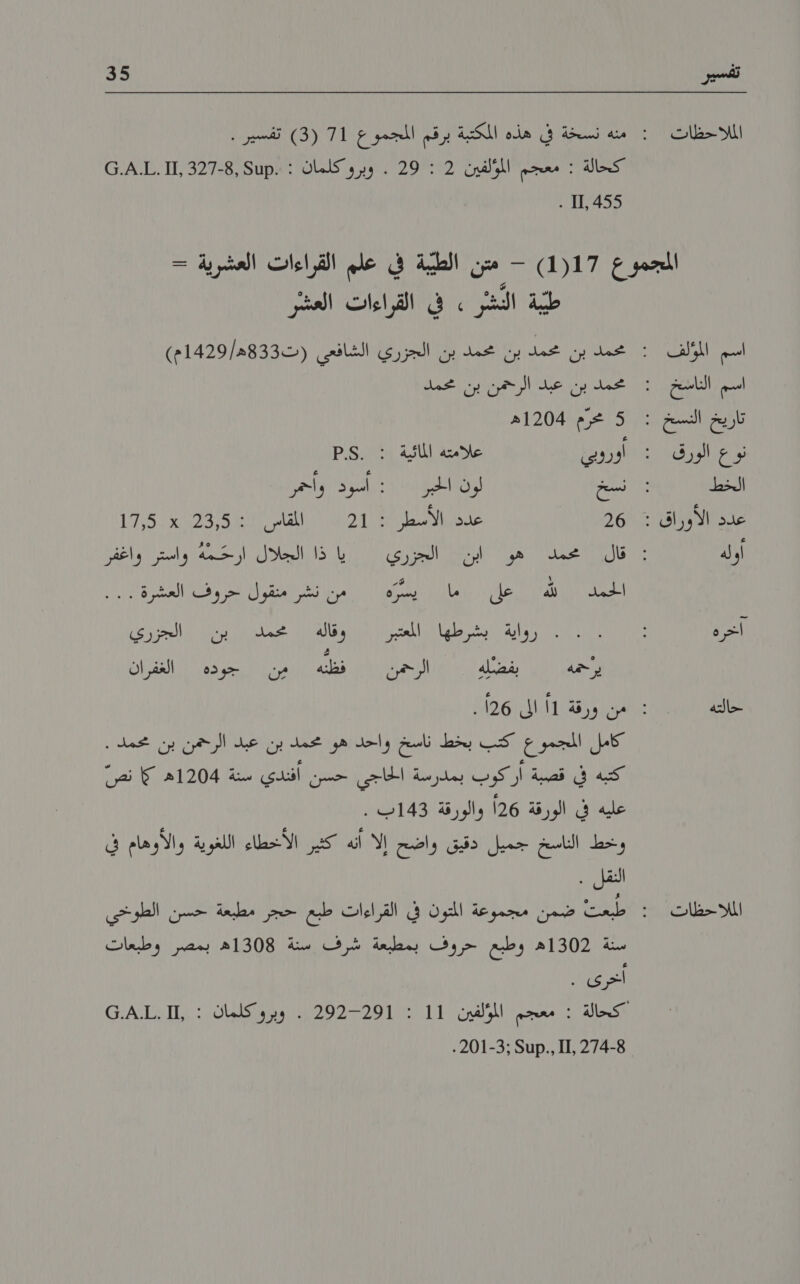 تفسير 35
الملاحظات : منه نسخة في هذه المكتبة برقم المجموع 71 (3) تفسير .
كحالة : معجم المؤلفين 2 : 29 . وبروكلمان : G.A.L. II, 327-8, Sup.
II, 455 .
المجموع 17(1) – متن الطيّبة في علم القراءات العشرية =
طيّبة النَّشْر ، في القراءات العشْر
اسم المؤلف : محمد بن محمد بن محمد بن الجزري الشافعي (ت833هـ/1429م)
اسم الناسخ : محمد بن عبد الرحمن بن محمد
تاريخ النسخ : 5 محرّم 1204هـ
نوع الورق : أوروبي علامته المائية : P.S.
الخط : نسخ لون الحبر : أسود وأحمر
عدد الأوراق : 26 عدد الأسطر : 21 المقاس : 23,5 x 17,5
أوله : قال محمد هو ابن الجزري يا ذا الجلال ارحَمْهُ واستر واغفر
الحمد لله على ما يسَّره من نشر منقول حروف العشرة ...
آخره : . . . رواية بشرطها المعتبر وقاله محمد بن الجزري
يرْحمه بفضْلِه الرحمن فظنُّه مِن جوده الغفران
حالته : من ورقة 1أ الى 26أ .
كامل المجموع كتب بخط ناسخ واحد هو محمد بن عبد الرحمن بن محمد .
كتبه في قصبة أركوب بمدرسة الحاجي حسن أفندي سنة 1204هـ كما نصّ
عليه في الورقة 26أ والورقة 143ب .
وخط الناسخ جميل دقيق واضح إلا أنه كثير الأخطاء اللغوية والأوهام في
النقل .
الملاحظات : طُبعتْ ضمن مجموعة المتون في القراءات طبع حجر مطبعة حسن الطوخي
سنة 1302هـ وطبع حروف بمطبعة شرف سنة 1308هـ بمصر وطبعات
أخرى .
كحالة : معجم المؤلفين 11 : 291–292 . وبروكلمان : G.A.L. II,
201-3; Sup., II, 274-8.